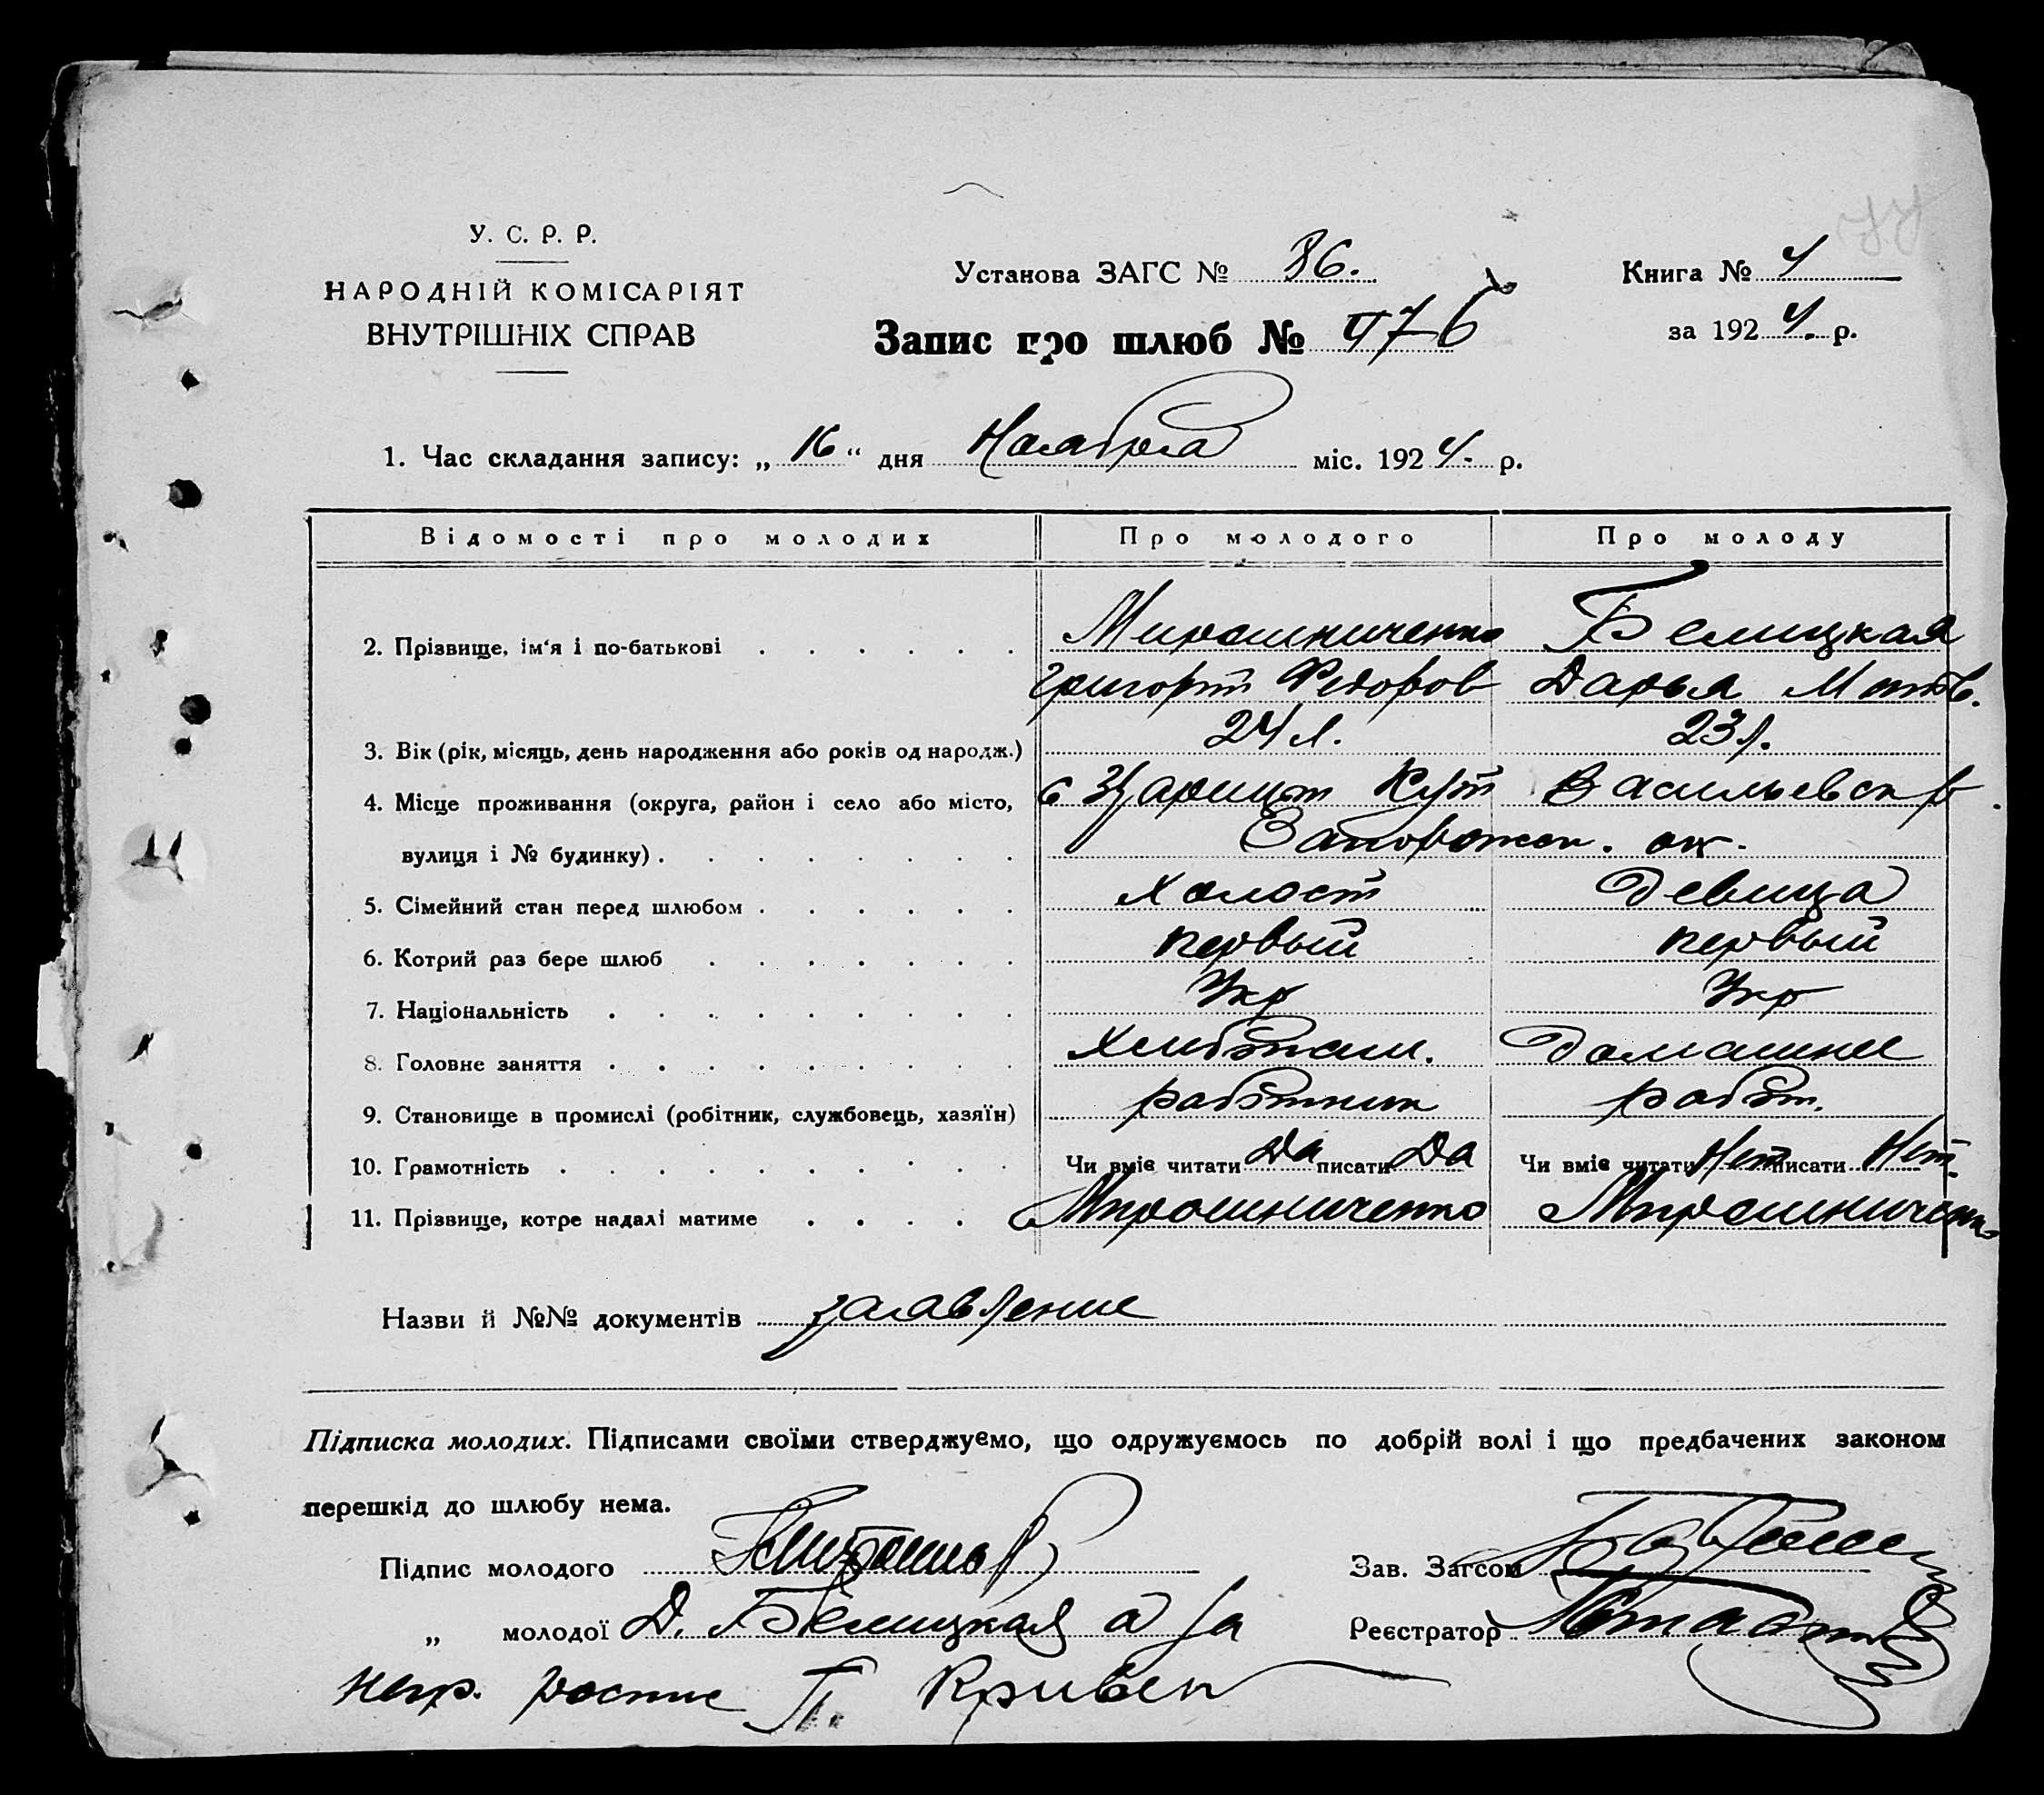 У. С. Р. Р.
НАРОДНІЙ КОМІСАРІЯТ
ВНУТРІШНІХ СПРАВ
Установа ЗАГС № 86.
Книга № 4
за 1924. р.
Запис про шлюб №
1. Час складання запису: „ 16 “ дня Ноября міс. 1924. р.
Відомості про молодих Про молодого Про молоду
2. Прізвище, ім'я і по-батькові Мирошниченко Белицкая
Григорий Федоров Дарья Матв.
3. Вік (рік, місяць, день народження або років од народж.) 24 л. 23 л.
4. Місце проживання (округа, район і село або місто, с Царицын Кут Васильевск р.
вулиця і № будинку) Запорожск. ок.
5. Сімейний стан перед шлюбом Холост Девица
6. Котрий раз бере шлюб первый первый
7. Національність Укр Укр
8. Головне заняття Хлибопаш. Домашнее
9. Становище в промислі (робітник, службовець, хазяїн) работник работ.
10. Грамотність Чи вміє читати Да писати Да Чи вміє читати Нет писати Нет.
11. Прізвище, котре надалі матиме Мирошниченко Мирошниченко
Назви й №№ документів заявление
Підписка молодих. Підписами своїми стверджуємо, що одружуємось по добрій волі і що предбачених законом
перешкід до шлюбу нема.
Підпис молодого
Зав. Загсом
„ молодої Д. Белицкая а за
Реєстратор
негр. роспис П. Кривен